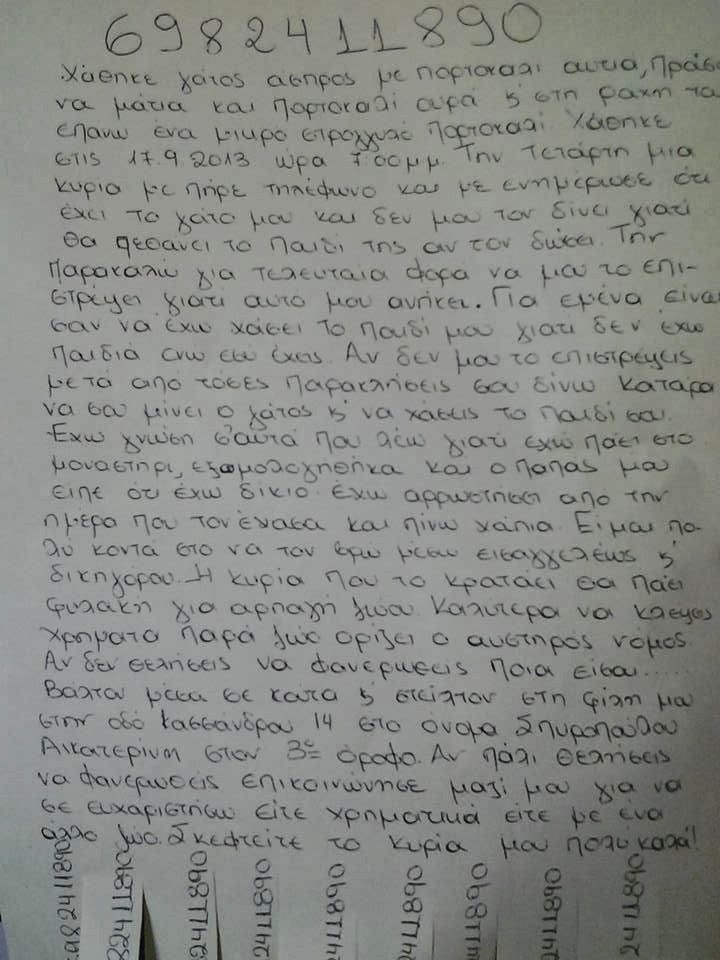 6982411890
Χάθηκε γάτος άσπρος με πορτοκαλί αυτιά, πράσι-
να μάτια και πορτοκαλί ουρά ς' στη ράχη του
επάνω ένα μικρό στρογγυλό πορτοκαλί. Χάθηκε
στις 17.9.2013 ώρα 7.00μμ. Την Τετάρτη μια
κυρία με πήρε τηλέφωνο και με ενημέρωσε ότι
έχει το γάτο μου και δεν μου τον δίνει γιατί
θα πεθάνει το παιδί της αν τον δώσει. Την
παρακαλώ για τελευταία φορά να μου το επι-
στρέψει γιατί αυτό μου ανήκει. Για εμένα είναι
σαν να έχω χάσει το παιδί μου γιατί δεν έχω
παιδιά ενώ εσύ έχεις. Αν δεν μου το επιστρέψεις
μετά από τόσες παρακλήσεις σου δίνω κατάρα
να σου μίνει ο γάτος ς' να χάσεις το παιδί σου.
Έχω γνώση σ'αυτά που λέω γιατί έχω πάει στο
μοναστήρι, εξομολογήθηκα και ο παπάς μου
είπε ότι έχω δίκιο. έχω αρρωστήσει από την
ημέρα που τον έχασα και πίνω χάπια. Είμαι πο-
λύ κοντά στο να τον βρω μέσω εισαγγελέως ς'
δικηγόρου. Η κυρία που το κρατάει θα πάει
φυλακή για αρπαγή ζώου. Καλύτερα να κλέψεις
χρήματα παρά ζώο ορίζει ο αυστηρός νόμος.
Αν δεν θελήσεις να φανερώσεις ποια είσαι.....
Βάλτον μέσα σε κούτα ς' στείλτον στη φίλη μου
στην οδό Κασσάνδρου 14 στο όνομα Σπυροπούλου
Αικατερίνη στον 3ο όροφο. Αν πάλι θελήσεις
να φανερωθείς επικοινώνησε μαζί μου για να
σε ευχαριστήσω είτε χρηματικά είτε με ένα
άλλο ζώο. Σκεφτείτε το κυρία μου πολύ καλά!
6982411890
82411890
2411890
2411890
2411890
2411890
2411890
2411890
2411890